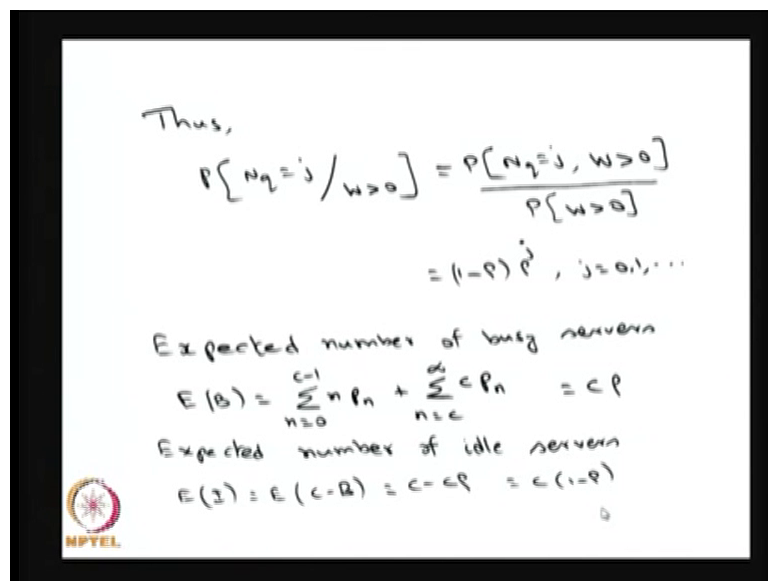 Thus,
P[Nq=j / W>0] = P[Nq=j, W>0]
P[W>0]
= (1-ρ) ρ^j , j=0,1,...
Expected number of busy servers
E(B) = Σ_{n=0}^{c-1} n Pn + Σ_{n=c}^{∞} c Pn = cρ
Expected number of idle servers
E(I) = E(c-B) = c-cρ = c(1-ρ)
NPTEL